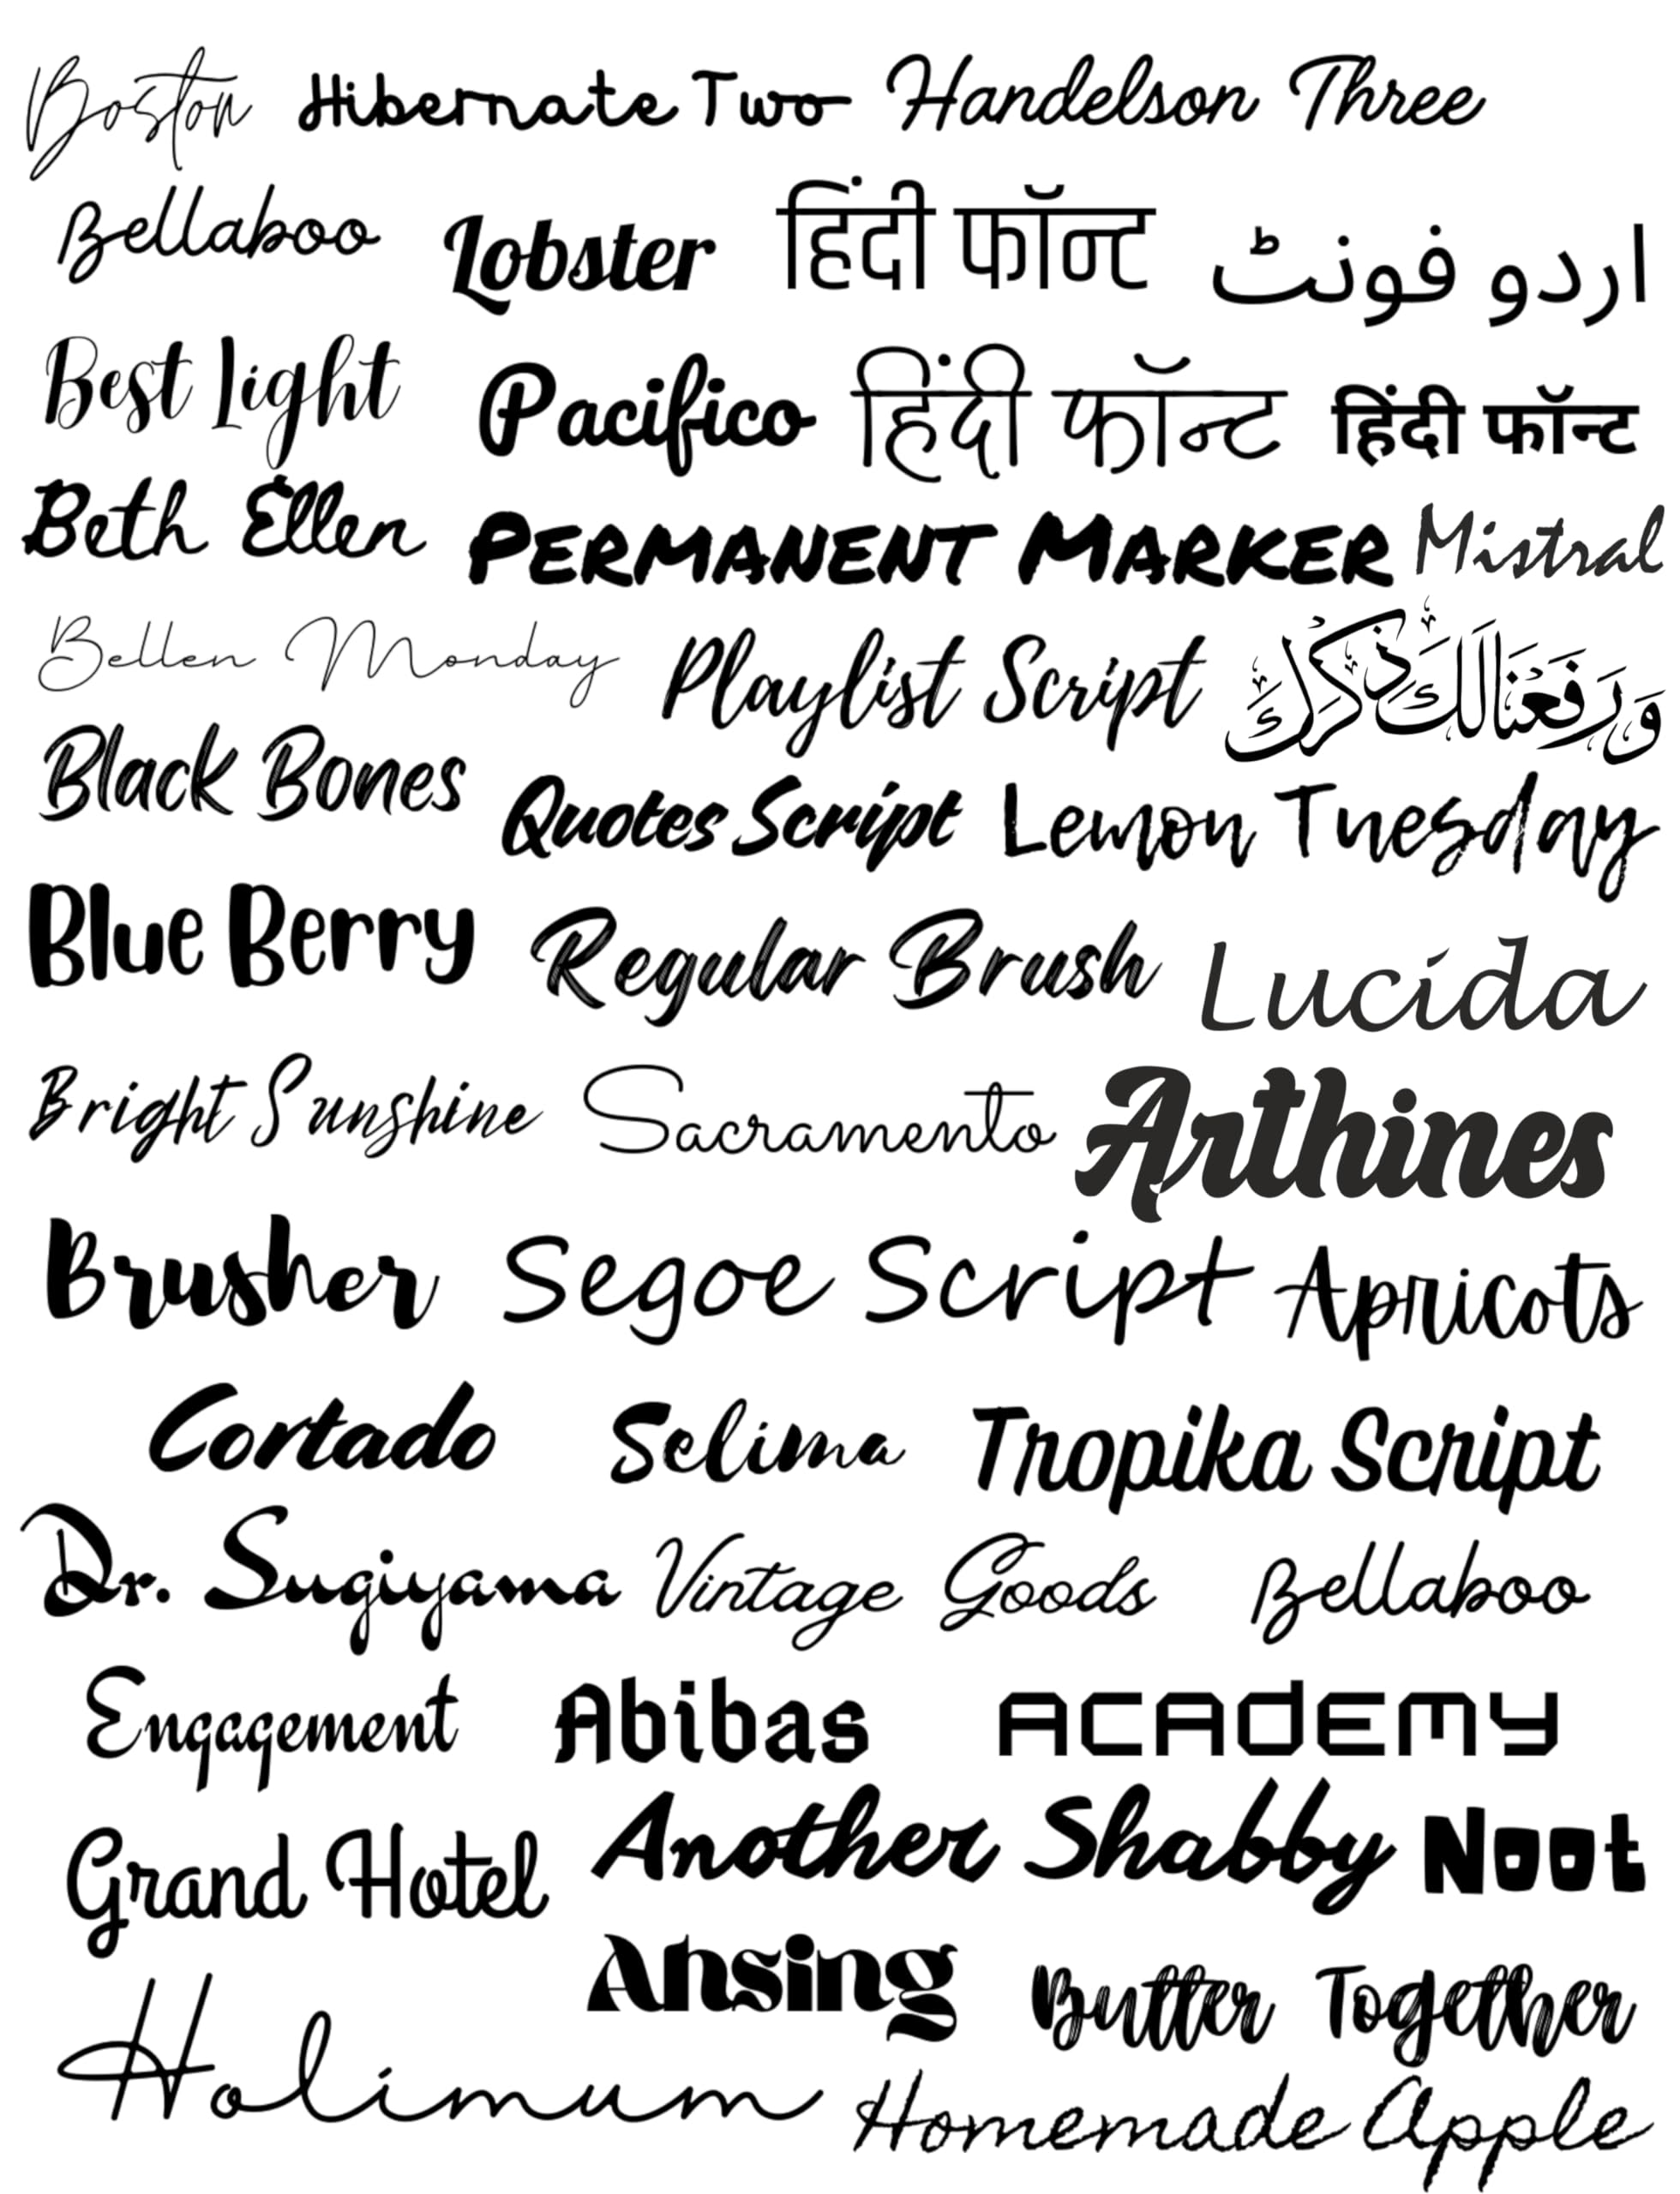 Boston Hibernate Two Handelson Three
Bellaboo Lobster हिंदी फॉन्ट اردو فونٹ
Best Light Pacifico हिंदी फॉन्ट हिंदी फॉन्ट
Beth Ellen PERMANENT MARKER Mistral
Bellen Monday Playlist Script وَرَفَعْنَا لَكَ ذِكْرَكَ
Black Bones Quotes Script Lemon Tuesday
Blue Berry Regular Brush Lucida
Bright Sunshine Sacramento Arthines
Brusher Segoe Script Apricots
Cortado Selima Tropika Script
Dr. Sugiyama Vintage Goods Bellaboo
Engagement Abibas ACADEMY
Grand Hotel Another Shabby Noot
Holimum Ahsing Butter Together
Homemade Apple